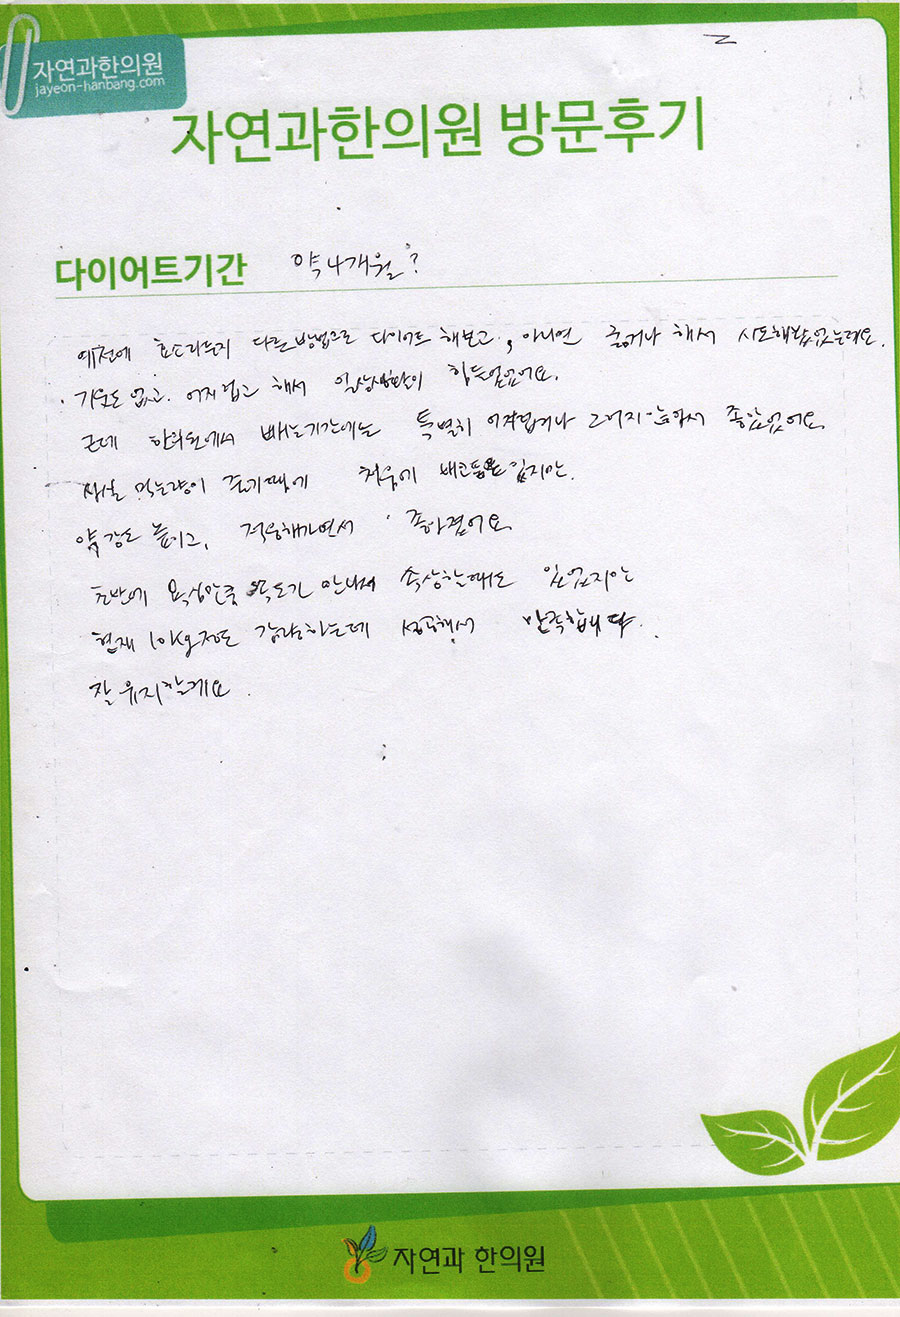 자연과한의원
jayeon-hanbang.com
자연과한의원 방문후기
다이어트기간 약 4개월?
예전에 다른방법으로 다이어트 해보고, 아니면 굶거나 해서 시도해봤었는데요.
기운도 없고. 어지럽고 해서 일상생활이 힘들었었어요.
근데 한의원에서 빼는기간에는 특별히 어지럽거나 그러지 않아서 좋았었어요.
사실 먹는량이 줄기때에 처음에 배고픔도 있지만.
약 강도 높이고, 적응해가면서 좋아졌어요.
초반에 욕심만큼 속도가 안나서 속상할때도 있었지만
현재 정도 감량하는데 성공해서 만족합니다.
잘 유지할게요.
자연과 한의원